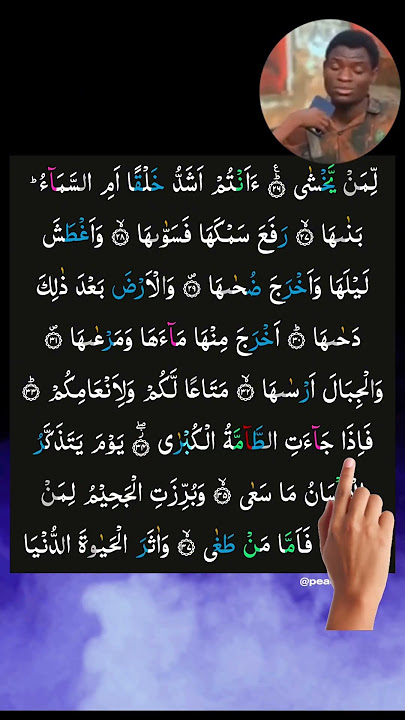 لِّمَنْ يَّخْشٰى ۝٢٦ ءَاَنْتُمْ اَشَدُّ خَلْقًا اَمِ السَّمَآءُ ؕ
بَنٰىهَا ۝٢٧ رَفَعَ سَمْكَهَا فَسَوّٰىهَا ۝٢٨ وَاَغْطَشَ
لَيْلَهَا وَاَخْرَجَ ضُحٰىهَا ۝٢٩ وَالْاَرْضَ بَعْدَ ذٰلِكَ
دَحٰىهَا ۝٣٠ اَخْرَجَ مِنْهَا مَآءَهَا وَمَرْعٰىهَا ۝٣١
وَالْجِبَالَ اَرْسٰىهَا ۝٣٢ مَتَاعًا لَّكُمْ وَلِاَنْعَامِكُمْ ۝٣٣
فَاِذَا جَآءَتِ الطَّآمَّةُ الْكُبْرٰى ۝٣٤ يَوْمَ يَتَذَكَّرُ
مَا سَعٰى ۝٣٥ وَبُرِّزَتِ الْجَحِيْمُ لِمَنْ
فَاَمَّا مَنْ طَغٰى ۝٣٧ وَاٰثَرَ الْحَيٰوةَ الدُّنْيَا